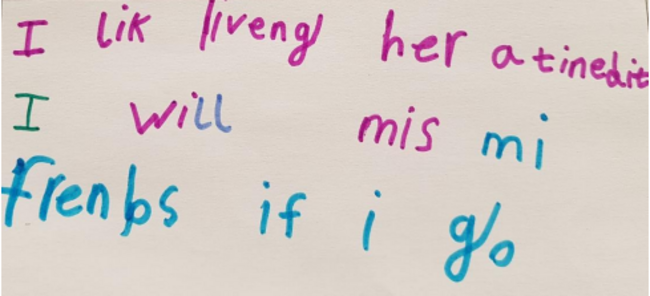 I lik liveng her a tinedit
I will mis mi
frenbs if i go